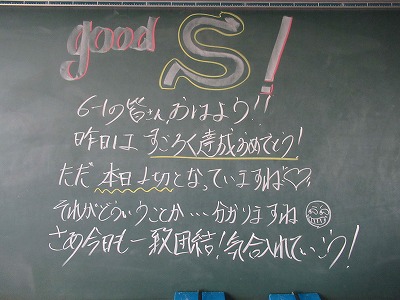 good S!
6-1の皆さん、おはよう!!
昨日は すごろく達成おめでとう!
ただ 本日〆切となっていますね♡
それがどういうことか…分かりますね
さあ今日も一致団結!気合入れていこう!